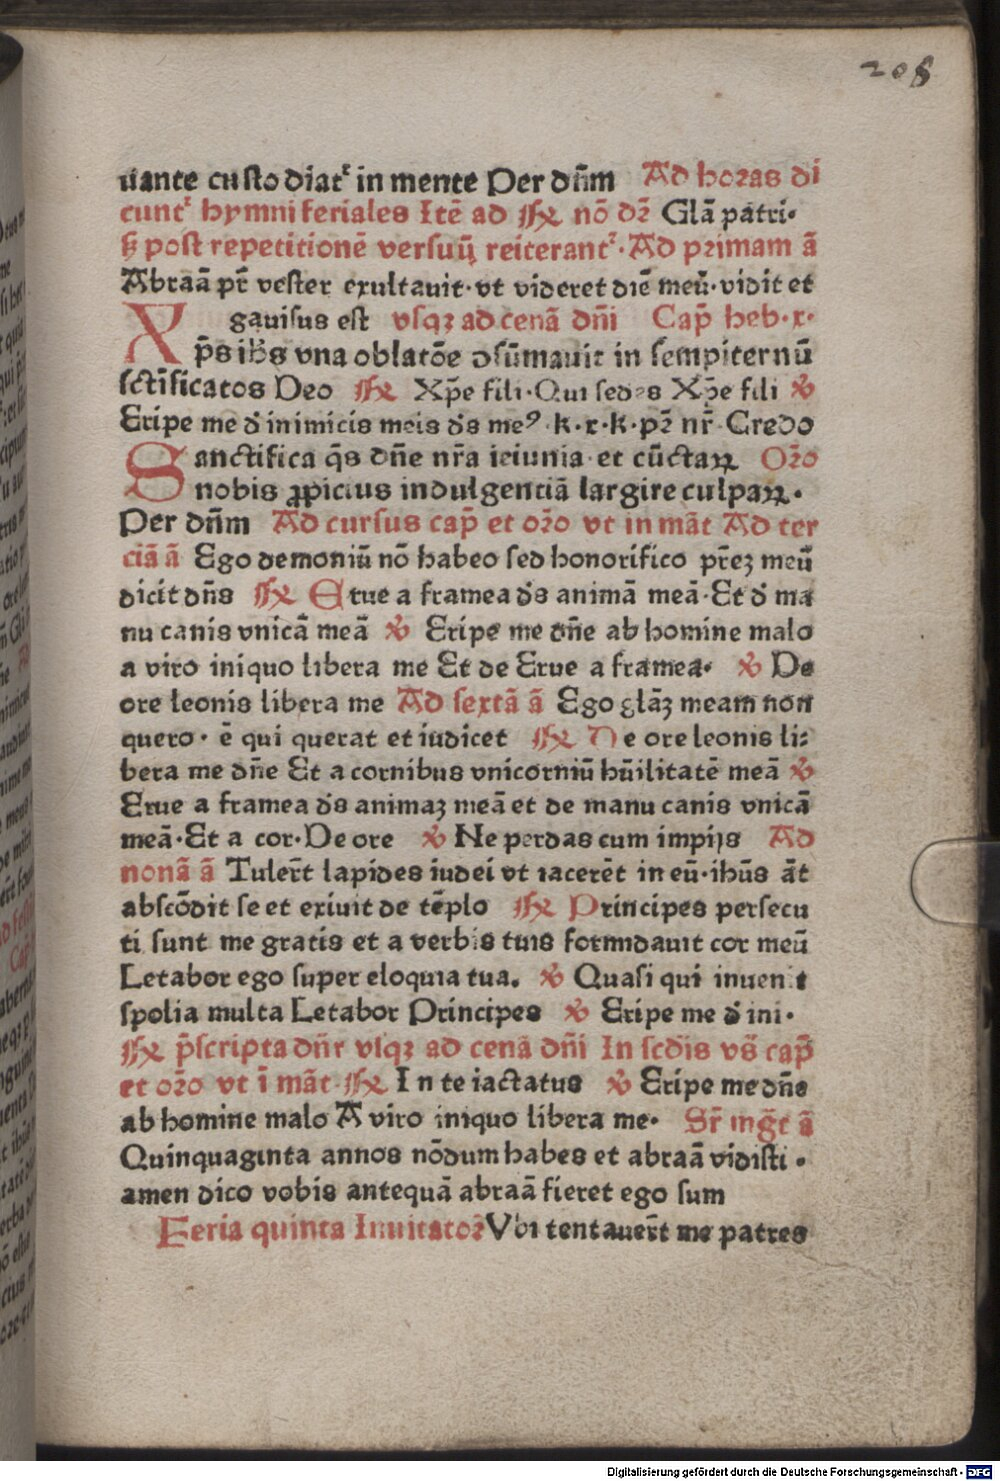 208
uante custodiat᷑ in mente Per dn̄m Ad horas di
cunt᷑ hymni feriales Itē ad ℟ nō dꝛ̄ Glā patri·
ꝫ post repetitionē versuū reiterant᷑· Ad primam ā
Abraā pr̄ vester exultauit· vt videret diē meū· vidit et
gauisus est vsqꝫ ad cenā dn̄i Cap̄ heb·x·
Xp̄s ih̄s vna oblatōe ↄsūmauit in sempiternū
sctīficatos Deo ℟ Xp̄e fili· Qui sedes Xp̄e fili ℣
Eripe me d̄ inimicis meis ds̄ meꝰ ·k·x·k·pꝛ̄ nr̄ Credo
Sanctifica q̄s dn̄e nr̄a ieiunia et cūctaꝝ Oꝛ̄o
nobis ꝓpicius indulgenciā largire culpaꝝ·
Per dn̄m Ad cursus cap̄ et oꝛ̄o vt in māt Ad ter
ciā ā Ego demoniū nō habeo sed honorifico pr̄eꝫ meū
dicit dn̄s ℟ Erue a framea ds̄ animā meā· Et d̄ ma
nu canis vnicā meā ℣ Eripe me dn̄e ab homine malo
a viro iniquo libera me Et de Erue a framea· ℣ De
ore leonis libera me Ad sextā ā Ego glāꝫ meam non
quero· ē qui querat et iudicet ℟ De ore leonis li:
bera me dn̄e Et a cornibus vnicorniū hūilitatē meā ℣
Erue a framea ds̄ animaꝫ meā et de manu canis vnicā
meā· Et a cor· De ore ℣ Ne perdas cum impijs Ad
nonā ā Tuler̄t lapides iudei vt iacerēt in eū· ihūs āt
abscōdit se et exiuit de tēplo ℟ Principes persecu
ti sunt me gratis et a verbis tuis formidauit cor meū
Letabor ego super eloquia tua. ℣ Quasi qui inuenit
spolia multa Letabor Principes ℣ Eripe me d̄ ini·
℟ p̄scripta dn̄r vsqꝫ ad cenā dn̄i In scdis vs̄ cap̄
et oꝛ̄o vt ī māt· ℟ In te iactatus ℣ Eripe me dn̄e
ab homine malo A viro iniquo libera me· Sr̄ mḡt ā
Quinquaginta annos nōdum habes et abraā vidisti·
amen dico vobis antequā abraā fieret ego sum
Feria quinta Inuitatoꝛ̄ Vbi tentauer̄t me patres
Digitalisierung gefördert durch die Deutsche Forschungsgemeinschaft - DFG